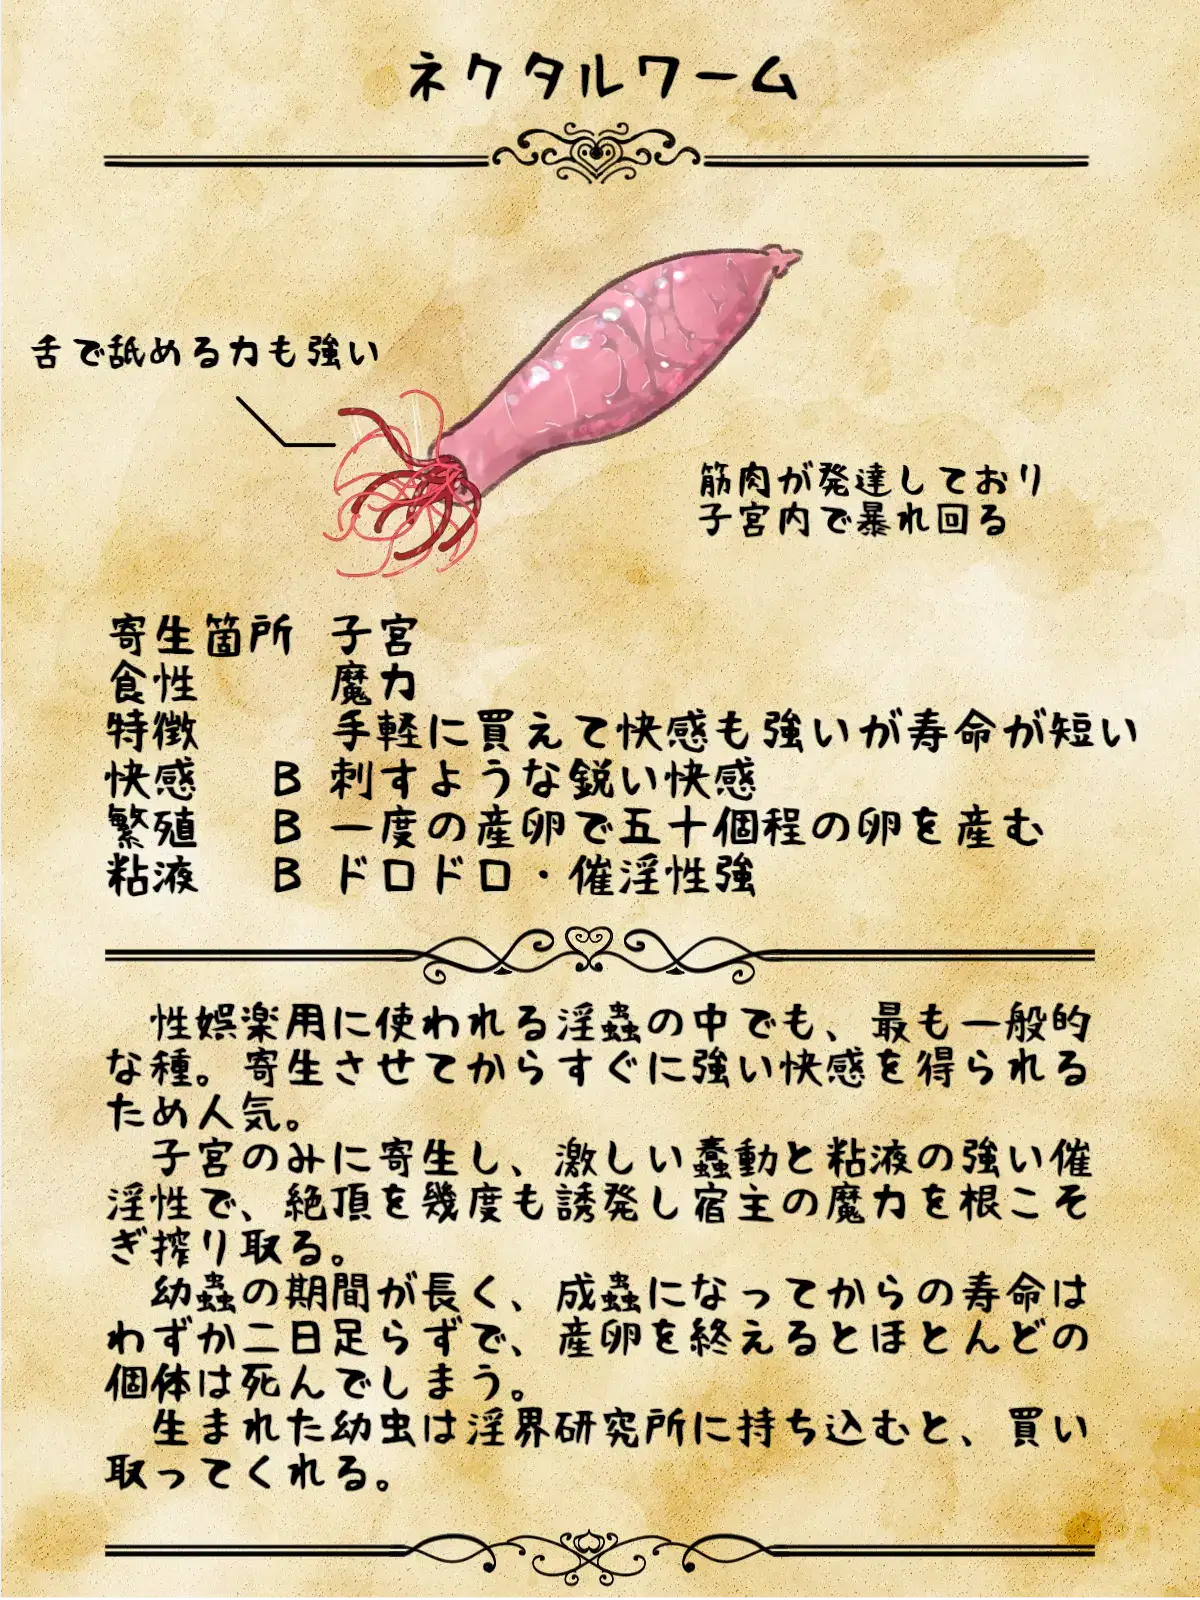 ネクタルワーム
舌で舐める力も強い
筋肉が発達しており
子宮内で暴れ回る
寄生箇所 子宮
食性 魔力
特徴 手軽に買えて快感も強いが寿命が短い
快感 B 刺すような鋭い快感
繁殖 B 一度の産卵で五十個程の卵を産む
粘液 B ドロドロ・催淫性強
性娯楽用に使われる淫蟲の中でも、最も一般的
な種。寄生させてからすぐに強い快感を得られる
ため人気。
子宮のみに寄生し、激しい蠢動と粘液の強い催
淫性で、絶頂を幾度も誘発し宿主の魔力を根こそ
ぎ搾り取る。
幼蟲の期間が長く、成蟲になってからの寿命は
わずか二日足らずで、産卵を終えるとほとんどの
個体は死んでしまう。
生まれた幼虫は淫界研究所に持ち込むと、買い
取ってくれる。